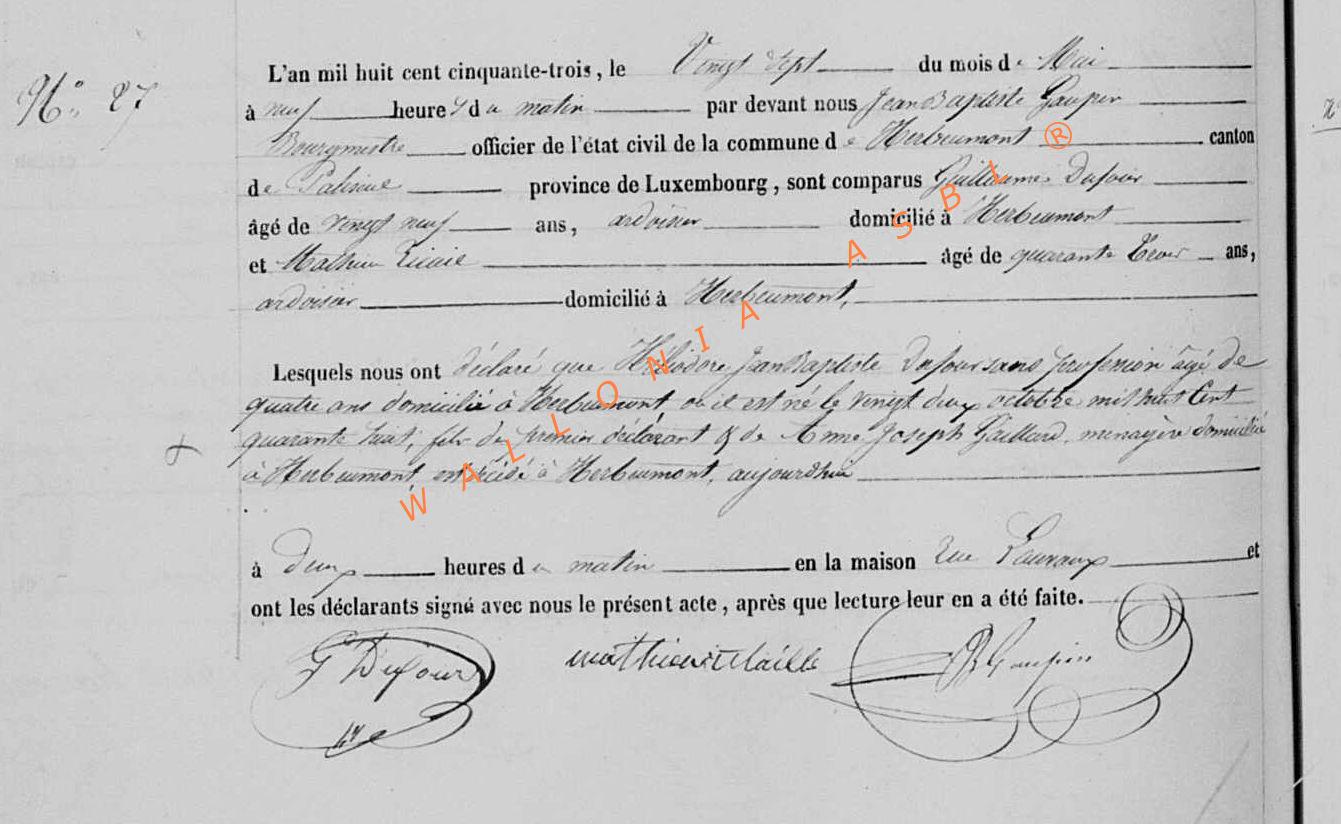 N° 27
L'an mil huit cent cinquante-trois, le Vingt Sept du mois de Mai
à neuf heures du matin par devant nous Jean Baptiste
Bourgmestre officier de l'état civil de la commune de Herbeumont canton
de Paliseul province de Luxembourg, sont comparus Guillaume Dufour
âgé de vingt neuf ans, ardoisier domicilié à Herbeumont
et Mathieu âgé de quarante trois ans,
ardoisier domicilié à Herbeumont,
Lesquels nous ont déclaré que Héliodore Jean Baptiste Dufour sans profession âgé de
quatre ans domicilié à Herbeumont, où il est né le vingt deux octobre mil huit cent
quarante huit, fils du premier déclarant & de Anne Joseph Gaillard, menagère domiciliée
à Herbeumont, est décédé à Herbeumont, aujourdhui
à Deux heures du matin en la maison rue et
ont les déclarants signé avec nous le présent acte, après que lecture leur en a été faite.
G Dufour
WALLONIA ASBL ®